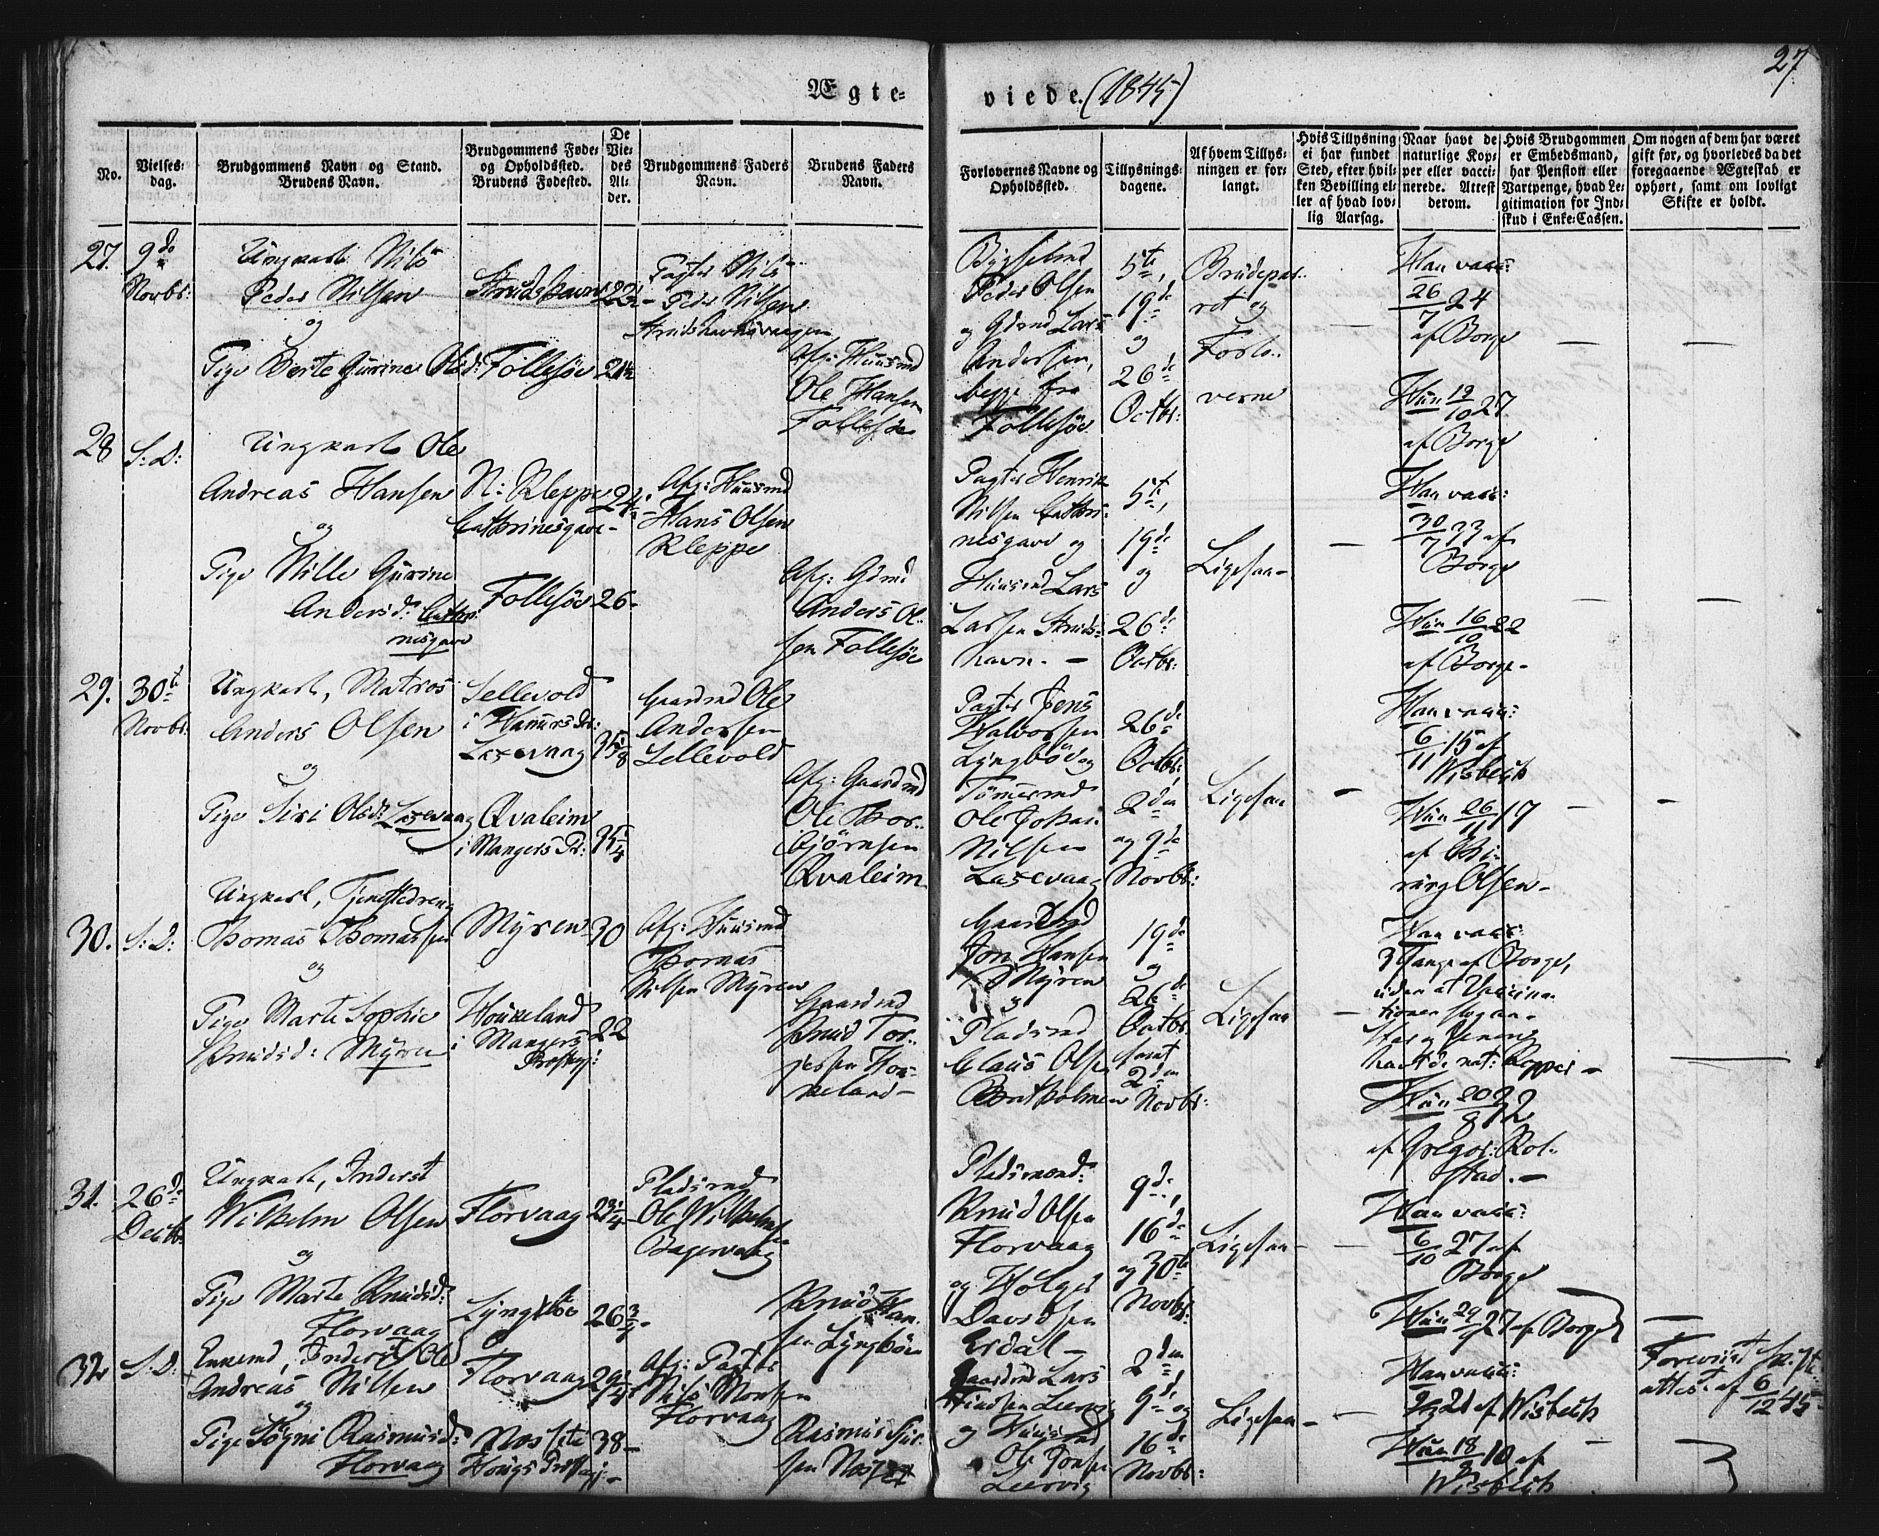 27
Ægte-
viede. (1845)
No.
Vielses-
dag.
Brudgommens Navn og Stand.
Brudens Navn.
Brudgommens Føde-
og Opholdssted.
Brudens Fødested.
De
Vie-
des
Al-
der.
Brudgommens Faders
Navn.
Brudens Faders
Navn.
Forlovernes Navne og
Opholdssted.
Tillysnings-
dagene.
Af hvem Tillys-
ningen er for-
langt.
Hvis Tillysning
ei har fundet
Sted, efter hvil-
ken Bevilling el-
ler af hvad lov-
lig Aarsag.
Naar havt de
naturlige Kop-
per eller vacci-
nerede. Attest
derom.
Hvis Brudgommen
er Embedsmand,
har Pension eller
Vartpenge, hvad Le-
gitimation for Ind-
skud i Enke-Cassen.
Om nogen af dem har været
gift før, og hvorledes da det
foregaaende Ægteskab er
ophørt, samt om lovligt
Skifte er holdt.
27.
9de
Novbr:
Ungkarl Nils
Peder Nilsen
og
Pige Berte Gurine Olsd:
Strudshavn
Follesøe
23
21½
Pagter Nils
Peder Nilsen
Strudshavnsvaagen
Afg: Huusmd
Ole Hansen
Follesøe
Bygselmd
Peder Olsen
og Gdmd Lars
Andersen,
begge fra
Follesøe
5te,
19de
og
26de
Octbr:
Brudepar-
ret og
Forlo-
verne
Han vacc:
26/7 24
af Borge
Hun 19/10 27
af Borge
28
S: D:
Ungkarl Ole
Andreas Hansen
og
Pige Nille Gurine
Andersd: Cathri-
nesgave
N: Kleppe
Cathrinesgave
Follesøe
24
26
Afg: Huusmd
Hans Olsen
Kleppe
Afg: Gdmd
Anders Ol-
sen Follesøe
Pagter Henrik
Nilsen Cathri-
nesgave og
Huusmd Lars
Larsen Struds-
havn.
5te,
19de
og
26de
Octbr:
Ligesaa
Han vacc:
30/7 33 af
Borge
Hun 16/10 22
af Borge
29.
30te
Novbr:
Ungkarl, Matros
Anders Olsen
og
Pige Siri Olsd: Laxevaag
Sellevold
i Hamers Pr:
Laxevaag
Qvaleim
i Mangers Pr:
Gaardmd Ole
Andersen
Sellevold
Afg: Gaardmd
Ole Thor-
bjørnsen
Qvaleim
Pagter Jens
Halvorsen
Lyngbøe og
Tømermd
Ole Johan
Nilsen
Laxevaag
26de
Octbr:
2den
og 9de
Novbr:
Ligesaa
Han vacc:
6/11 15 af
Wisbech
Hun 26/11 17
af Chi-
rurg Olsen
30.
S: D:
Ungkarl, Tjenstedreng
Thomas Thomassen
og
Pige Marte Sophie
Knudsd: Myren
Myren
Houkeland
i Mangers
Prestegj:
30
22
Afg: Huusmd
Thomas
Nilsen Myren
Gaardmd
Knud Tor-
jersen Hou-
keland
Gaardmd
Jon Hansen
Myren
og
Pladsmd
Claus Olsen
Bontholmen
19de
og
26de
Octbr:
samt
2den
Novbr:
Ligesaa
Han vacc:
3 Gange af Borge,
uden at Vaccina-
tionen slog an
havt de nat: Kopper
Hun 20/8 22
af Gregor: Rol-
stad.
31.
26de
Decbr:
Ungkarl, Inderst
Wilhelm Olsen
og
Pige Marte Knudsd:
Florvaag
Florvaag
Lyngbøe
29¼
26¾
Pladsmd
Ole Wilhelmsen
Bagervaag
Knud Han-
sen Lyngbøe
Pladsmand:
Knud Olsen
Florvaag
og Holger
Davidsen
Erdal
9de,
16de
og 30te
Novbr:
Ligesaa
Han vacc:
6/10 27 af
Borge
Hun 29/9 27 af Borge
32
S: D:
Enkemd, Inderst Ole
Andreas Nilsen
og
Pige Sogni Rasmusd:
Florvaag
Florvaag
Nossete
Hougs Prestegj:
38
Afg: Pagter
Nils Monsen
Florvaag
Rasmus Siur-
sen Nossete
Gaardmd Lars
Knudsen Leervig
og Huusmd
Ole Jonsen
Leervig
2den
9de og
16de
Novbr:
Ligesaa
Han vacc:
21 af Wisbech
Hun 18/9 10 af
Wisbech
Foreviist Skifte
attest af 6/12 45